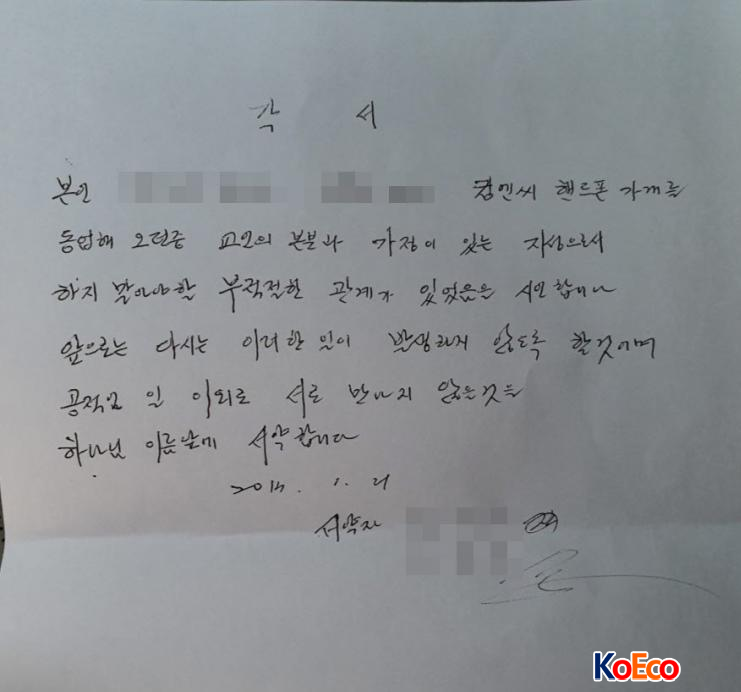 각 서
본인 컴엔씨 핸드폰 가게를
동업해 오던중 교인의 본분과 가정이 있는 자성으로서
하지 말아야할 부적절한 관계가 있었음을 시인합니다
앞으로는 다시는 이러한 일이 발생하지 않도록 할것이며
공적인 일 이외로 서로 만나지 않은것을
하나님 이름앞에 서약합니다
2015. 1. 21
서약자
KoEco